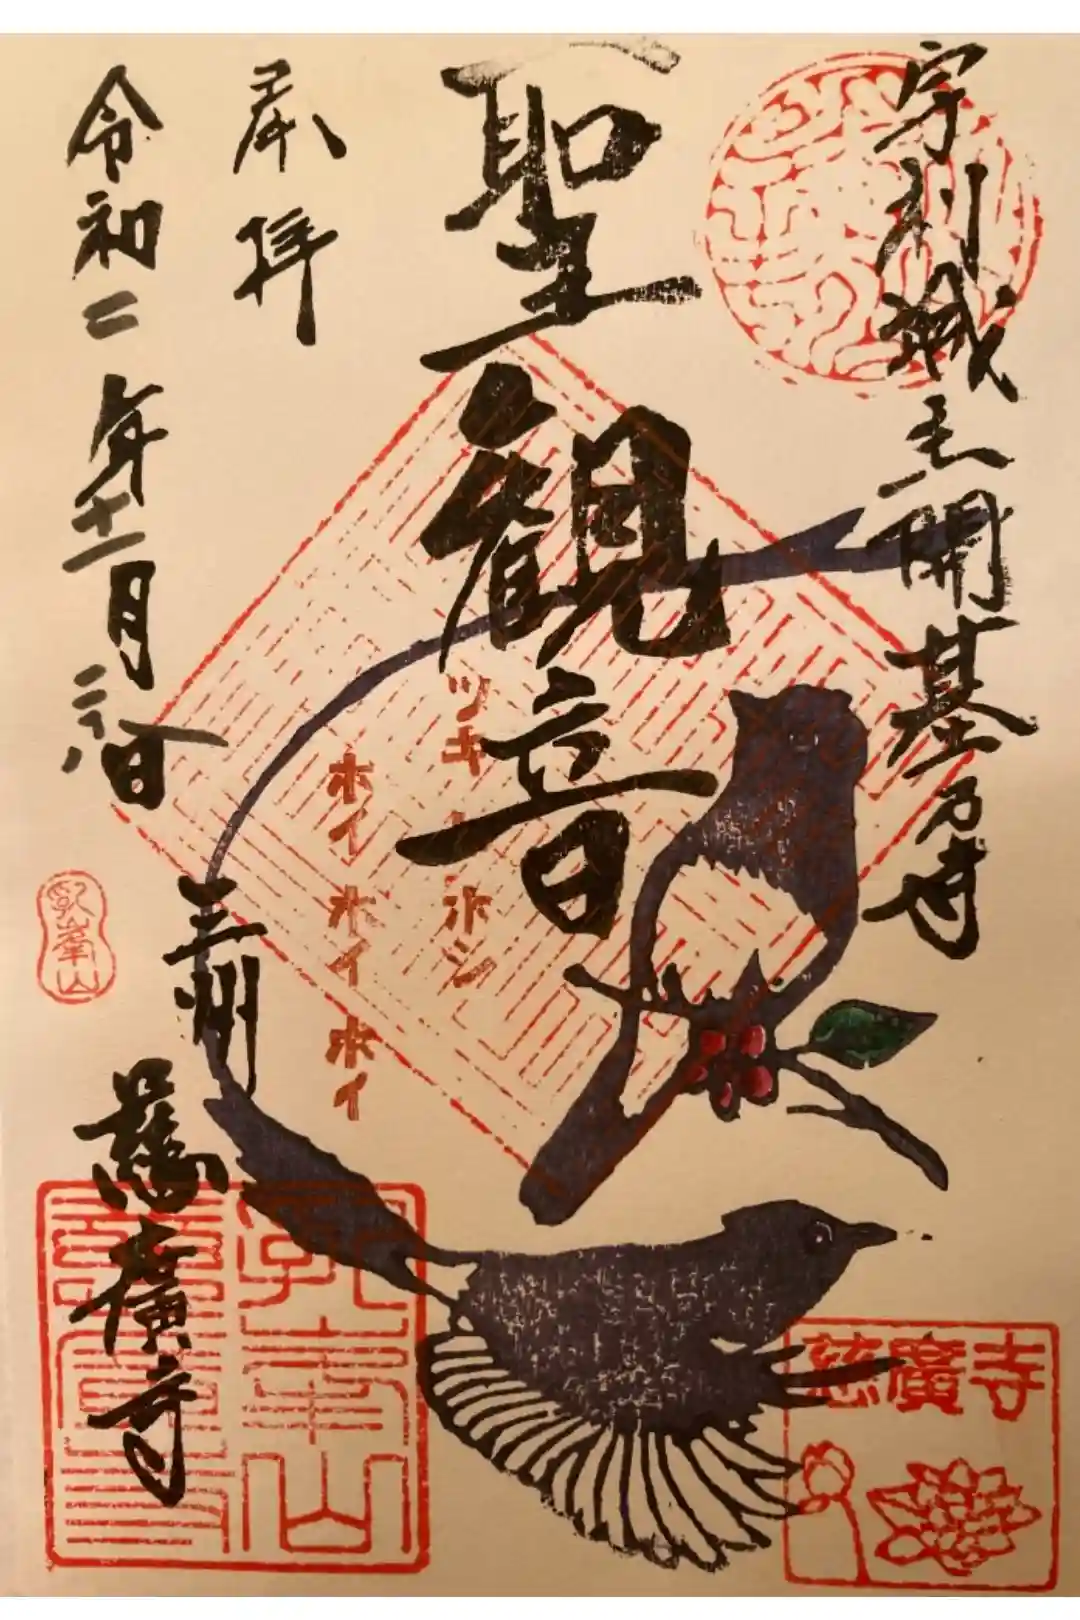 宇利城主開基乃寺
聖観音
ツキ ヒ ホシ
ホイ ホイ ホイ
奉拝
令和二年十一月三日
三州
慈廣寺
乳峯山
乳峯山
慈廣寺